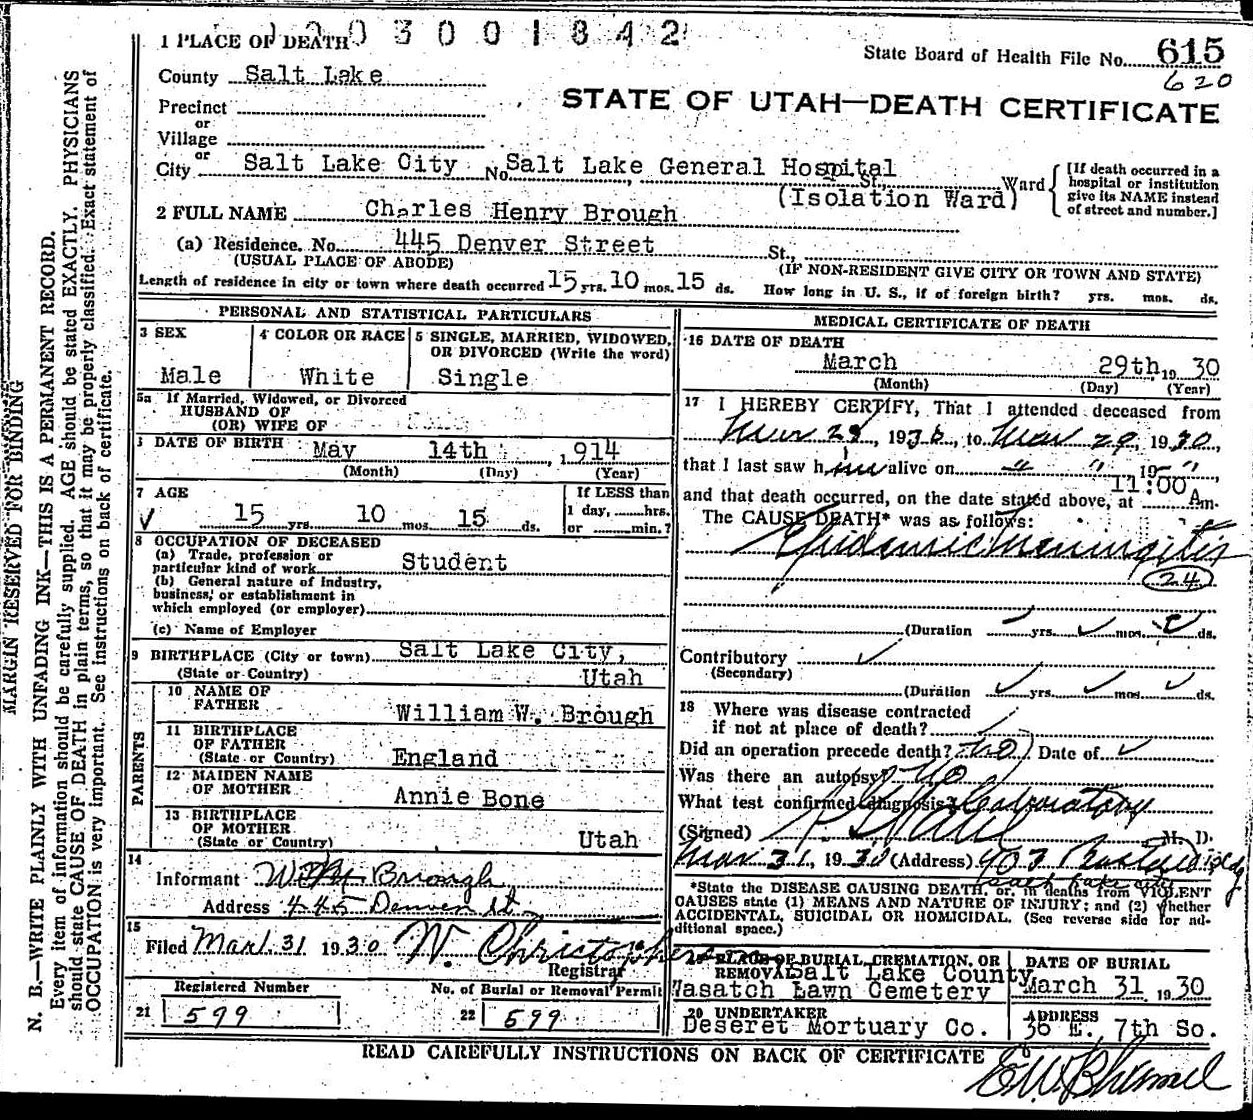 1 PLACE OF DEATH
0 3 0 0 1 8 4 2
State Board of Health File No. 615
620
County Salt Lake
STATE OF UTAH—DEATH CERTIFICATE
Precinct
or
Village
or
City Salt Lake City No. Salt Lake General Hospital St., Ward
(Isolation Ward)
[If death occurred in a
hospital or institution
give its NAME instead
of street and number.]
2 FULL NAME Charles Henry Brough
(a) Residence. No. 445 Denver Street St.,
(USUAL PLACE OF ABODE)
(IF NON-RESIDENT GIVE CITY OR TOWN AND STATE)
Length of residence in city or town where death occurred 15 yrs. 10 mos. 15 ds. How long in U. S., if of foreign birth? yrs. mos. ds.
PERSONAL AND STATISTICAL PARTICULARS
3 SEX
Male
4 COLOR OR RACE
White
5 SINGLE, MARRIED, WIDOWED,
OR DIVORCED (Write the word)
Single
5a If Married, Widowed, or Divorced
HUSBAND OF
(OR) WIFE OF
DATE OF BIRTH May 14th , 914
(Month) (Day) (Year)
7 AGE
15 yrs. 10 mos. 15 ds.
If LESS than
1 day, hrs.
or min.?
8 OCCUPATION OF DECEASED
(a) Trade, profession or
particular kind of work Student
(b) General nature of Industry,
business, or establishment in
which employed (or employer)
(c) Name of Employer
9 BIRTHPLACE (City or town) Salt Lake City,
(State or Country) Utah
PARENTS
10 NAME OF
FATHER William W. Brough
11 BIRTHPLACE
OF FATHER
(State or Country) England
12 MAIDEN NAME
OF MOTHER Annie Bone
13 BIRTHPLACE
OF MOTHER
(State or Country) Utah
14
Informant Brough
Address 445 Denver St.
15
Filed Mar. 31 1930 W. Christophers
Registrar
Registered Number
21 599
No. of Burial or Removal Permit
22 599
MEDICAL CERTIFICATE OF DEATH
16 DATE OF DEATH
March 29th 19 30
(Month) (Day) (Year)
17 I HEREBY CERTIFY, That I attended deceased from
Mar 28, 1930, to Mar 29, 1930,
that I last saw him alive on " " , 19 ",
and that death occurred, on the date stated above, at 11:00 A m.
The CAUSE DEATH* was as follows:
Epidemic Meningitis
24
(Duration yrs. mos. ds.
Contributory
(Secondary)
(Duration yrs. mos. ds.
18 Where was disease contracted
if not at place of death?
Did an operation precede death? no Date of
Was there an autopsy? no
What test confirmed diagnosis? Laboratory
(Signed) M. D.
Mar 31, 1930 (Address) 403
*State the DISEASE CAUSING DEATH, or, in deaths from VIOLENT
CAUSES state (1) MEANS AND NATURE OF INJURY; and (2) whether
ACCIDENTAL, SUICIDAL OR HOMICIDAL. (See reverse side for ad-
ditional space.)
19 PLACE OF BURIAL, CREMATION, OR
REMOVAL Salt Lake County
Wasatch Lawn Cemetery
DATE OF BURIAL
March 31 19 30
20 UNDERTAKER
Deseret Mortuary Co.
ADDRESS
36 E. 7th So.
READ CAREFULLY INSTRUCTIONS ON BACK OF CERTIFICATE
MARGIN RESERVED FOR BINDING
N. B.—WRITE PLAINLY WITH UNFADING INK—THIS IS A PERMANENT RECORD.
Every item of information should be carefully supplied. AGE should be stated EXACTLY. PHYSICIANS
should state CAUSE OF DEATH in plain terms, so that it may be properly classified. Exact statement of
OCCUPATION is very important. See instructions on back of certificate.